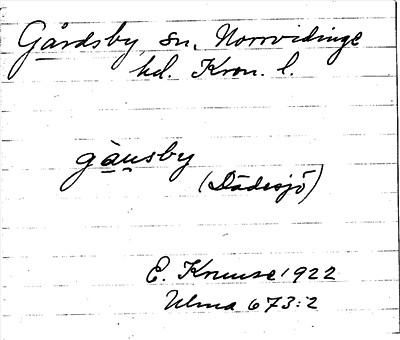 Gårdsby, sn, Norrvidinge
hd. Kron. l.
gàusby
(Dädesjö)
E. Kruuse 1922
Ulma 673:2